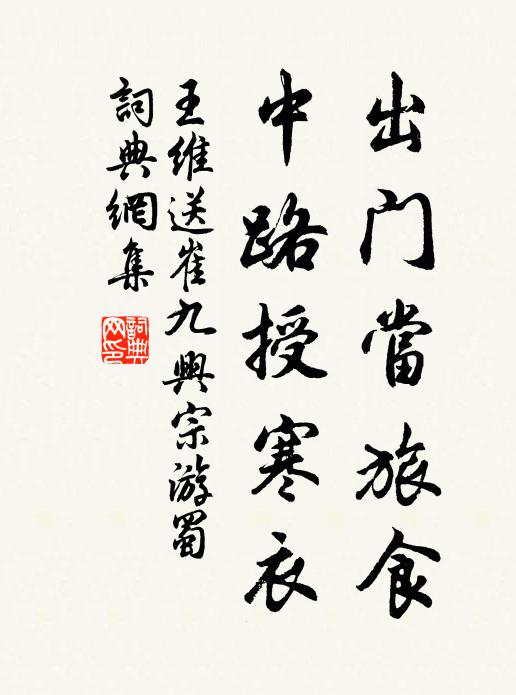 出門當旅食
中路授寒衣
王維送崔九興宗游蜀
詞典網集
詞典网印